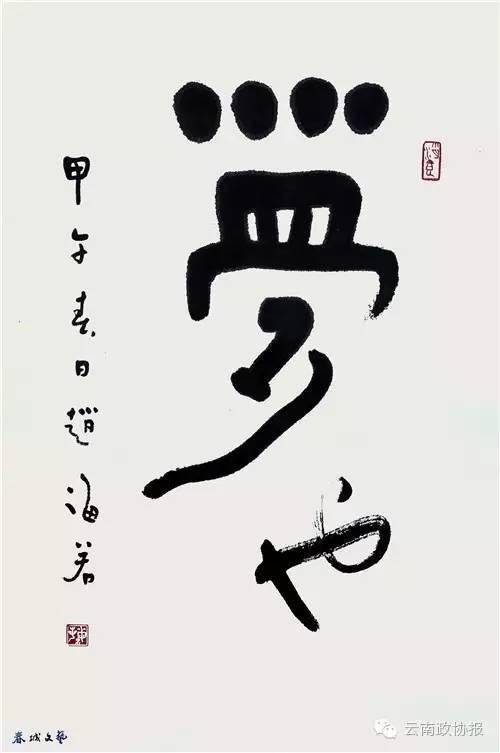 夢也
甲午春日趙海若
春城文藝
云南政协报